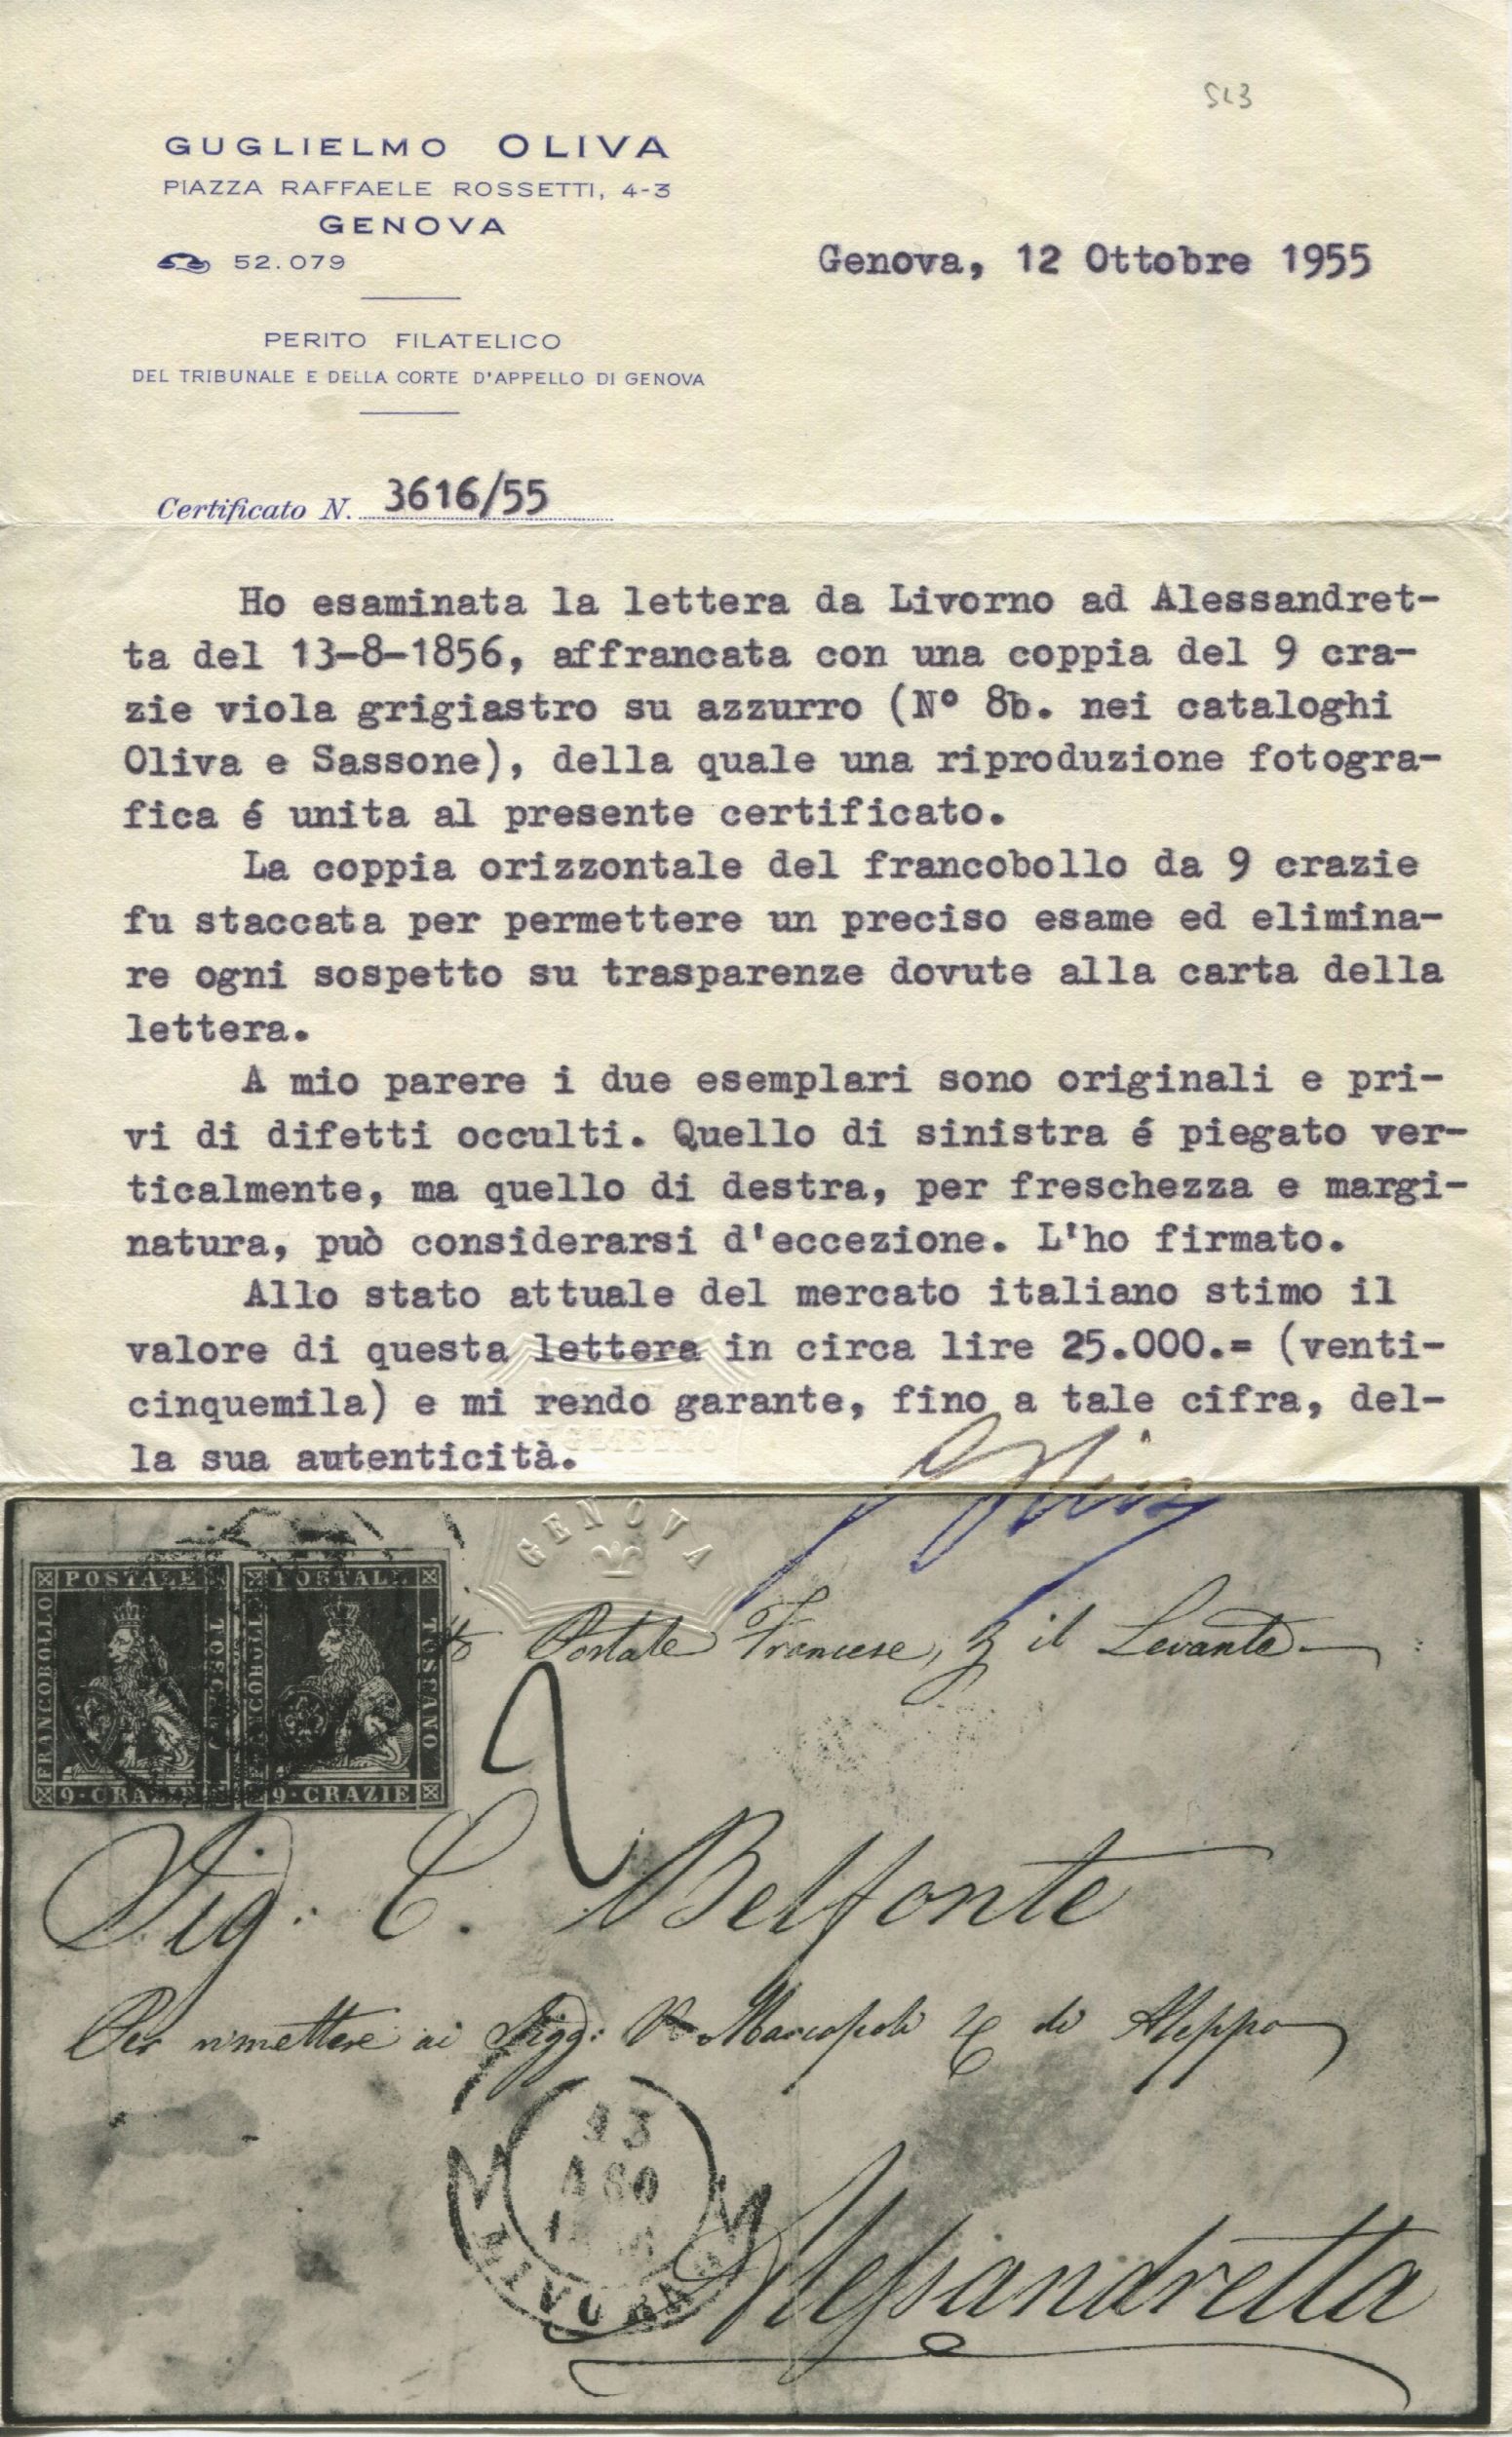 SL3
GUGLIELMO OLIVA
PIAZZA RAFFAELE ROSSETTI, 4-3
GENOVA
52.079
Genova, 12 Ottobre 1955
PERITO FILATELICO
DEL TRIBUNALE E DELLA CORTE D'APPELLO DI GENOVA
Certificato N. 3616/55
Ho esaminata la lettera da Livorno ad Alessandret-
ta del 13-8-1856, affrancata con una coppia del 9 cra-
zie viola grigiastro su azzurro (N° 8b. nei cataloghi
Oliva e Sassone), della quale una riproduzione fotogra-
fica é unita al presente certificato.
La coppia orizzontale del francobollo da 9 crazie
fu staccata per permettere un preciso esame ed elimina-
re ogni sospetto su trasparenze dovute alla carta della
lettera.
A mio parere i due esemplari sono originali e pri-
vi di difetti occulti. Quello di sinistra é piegato ver-
ticalmente, ma quello di destra, per freschezza e margi-
natura, può considerarsi d'eccezione. L'ho firmato.
Allo stato attuale del mercato italiano stimo il
valore di questa lettera in circa lire 25.000.= (venti-
cinquemila) e mi rendo garante, fino a tale cifra, del-
la sua autenticità.
Oliva
GENOVA
FRANCOBOLLO POSTALE TOSCANO
9·CRAZIE
FRANCOBOLLO POSTALE TOSCANO
9·CRAZIE
Postale Francese, il Levante
2
Sig: C. Belfonte
Per rimettere ai Sigg: Marcopoli di Aleppo
13
AGO
LIVORNO
Alessandretta